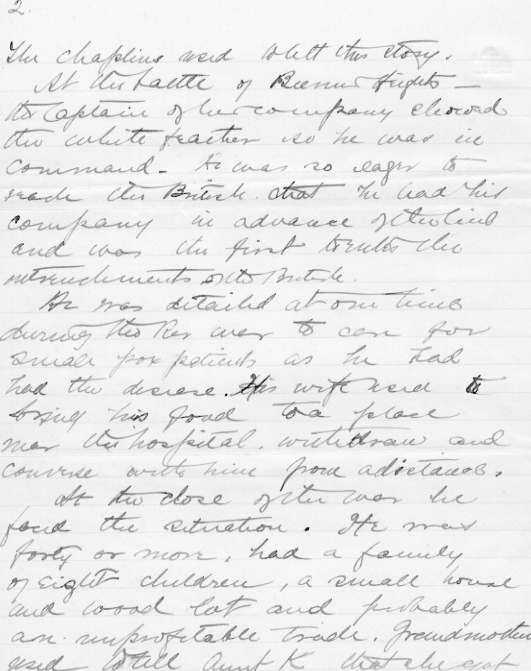 2.
The chaplin used to tell this story.
At the battle of Bemis Heights —
the Captain of his company showed
the white feather so he was in
command. He was so eager to
reach the British that he had his
company in advance of the line
and was the first to enter the
entrenchments of the British.
He was detailed at one time
during the Rev war to care for
small pox patients as he had
had the disease. His wife used to
bring his food to a place
near the hospital, withdraw and
converse with him from a distance.
At the close of the war he
faced the situation. He was
forty or more, had a family
of eight children, a small house
and wood lot and probably
an unprofitable trade. Grandmother
used to tell Aunt K that she